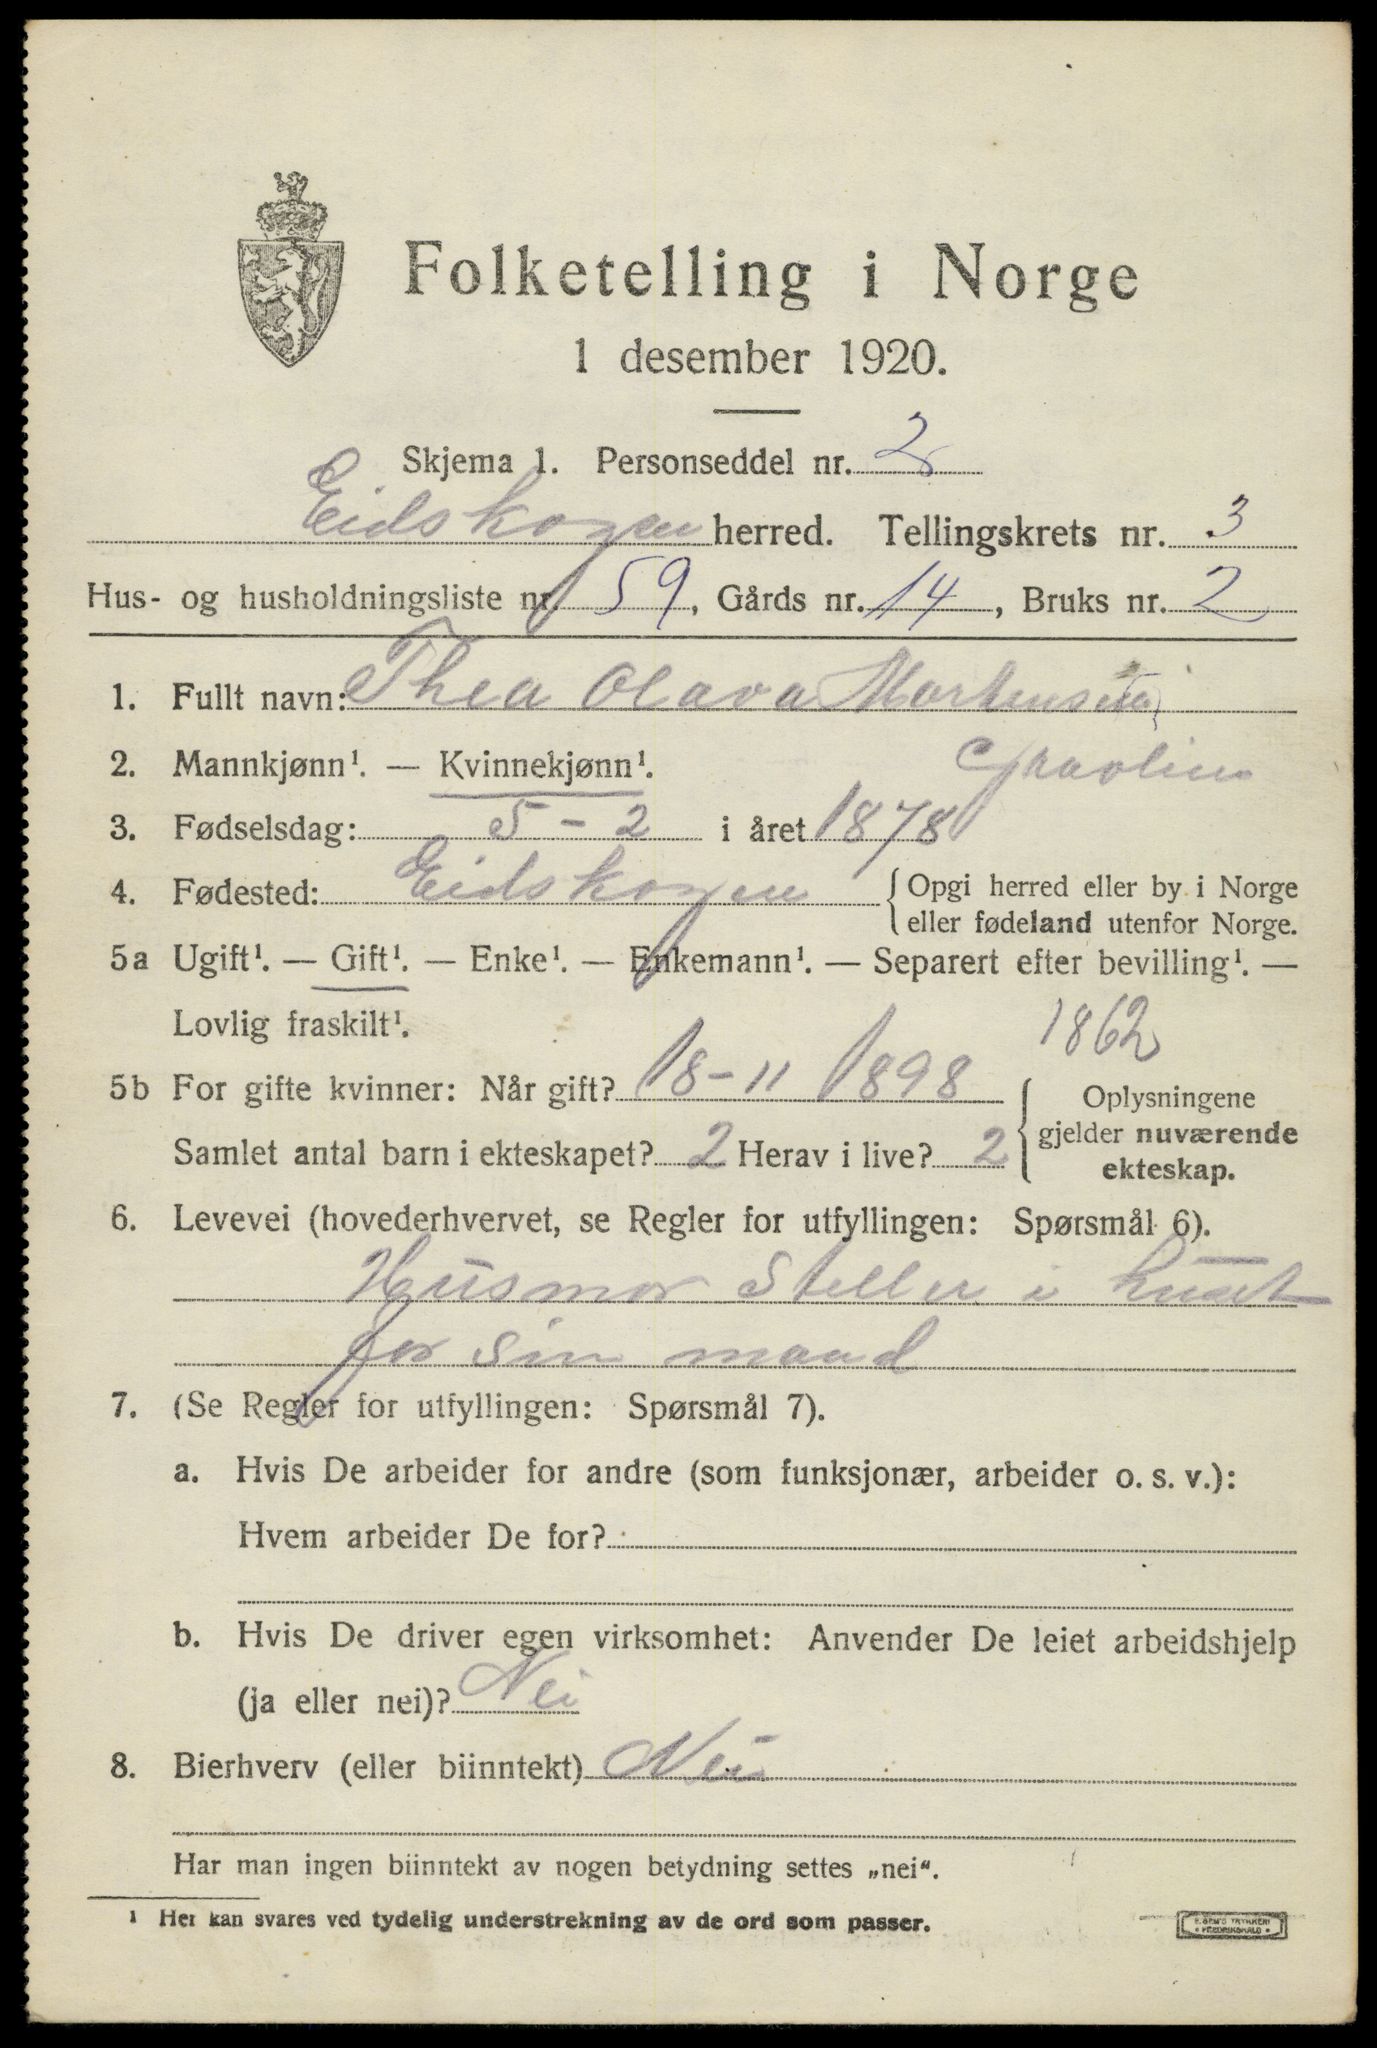 Folketelling i Norge
1 desember 1920.
Skjema 1. Personseddel nr. 2
Eidskogen herred. Tellingskrets nr. 3
Hus- og husholdningsliste nr. 59, Gårds nr. 14, Bruks nr. 2
1. Fullt navn: Thea Olava Mortensen
2. Mannkjønn¹. — Kvinnekjønn¹.
3. Fødselsdag: 5-2 i året 1878
4. Fødested: Eidskogen { Opgi herred eller by i Norge
eller fødeland utenfor Norge.
5a Ugift¹. — Gift¹. — Enke¹. — Enkemann¹. — Separert efter bevilling¹. —
Lovlig fraskilt¹.
1862
5b For gifte kvinner: Når gift? 18-11 1898 { Oplysningene
gjelder nuværende
Samlet antal barn i ekteskapet? 2 Herav i live? 2
ekteskap.
6. Levevei (hovederhvervet, se Regler for utfyllingen: Spørsmål 6).
Husmor Steller i huset
for sin mand
7. (Se Regler for utfyllingen: Spørsmål 7).
a. Hvis De arbeider for andre (som funksjonær, arbeider o. s. v.):
Hvem arbeider De for?
b. Hvis De driver egen virksomhet: Anvender De leiet arbeidshjelp
(ja eller nei)? Nei
8. Bierhverv (eller biinntekt) Nei
Har man ingen biinntekt av nogen betydning settes „nei".
¹ Her kan svares ved tydelig understrekning av de ord som passer.